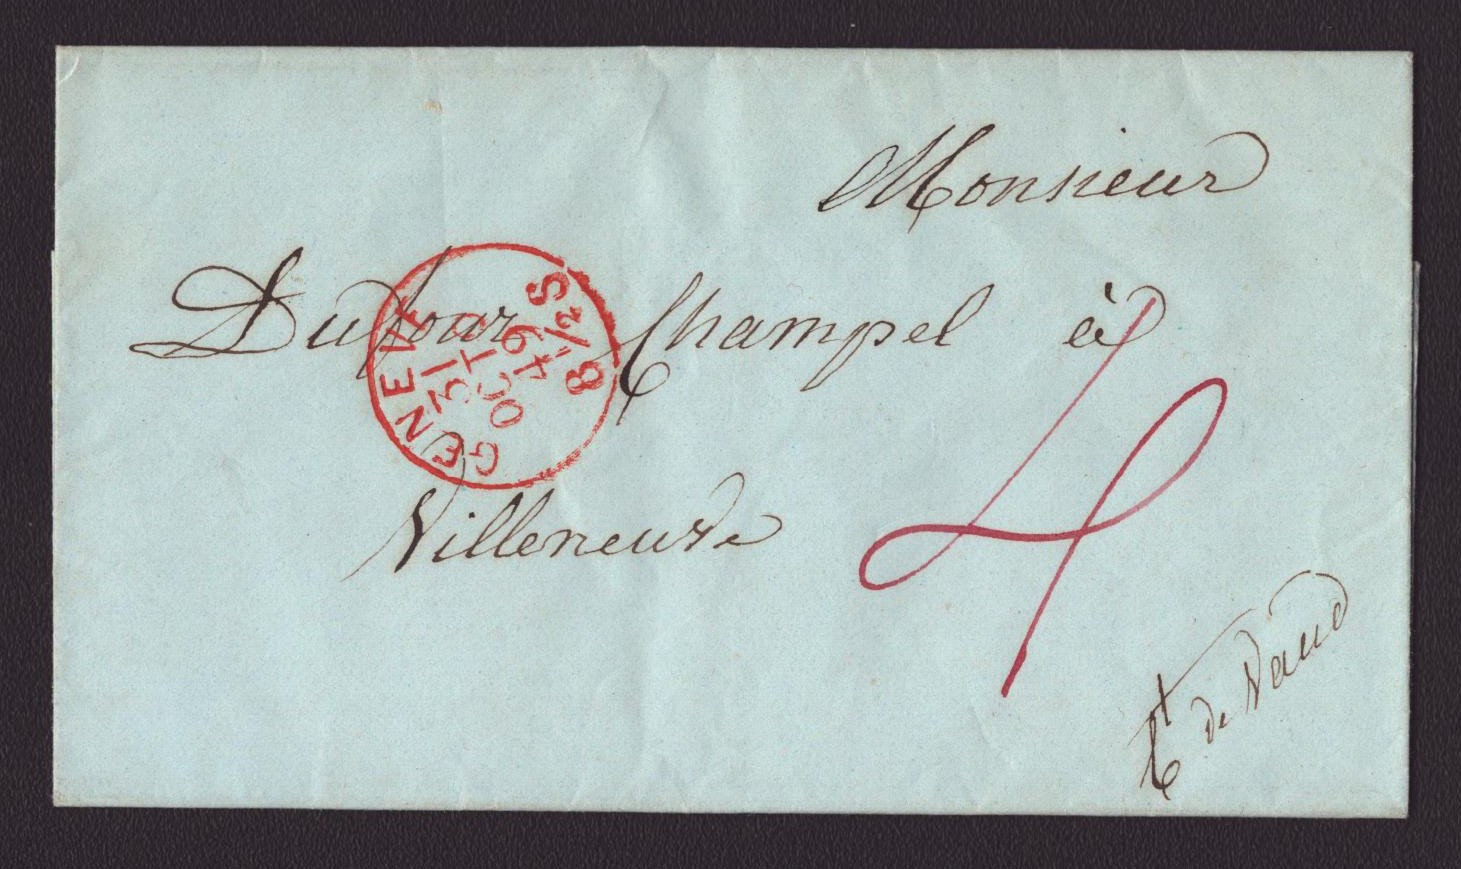 Monsieur
Dufour Champel à
Villeneuve
Ct de Vaud
GENEVE
31
OCT
49
8 1/2 S
4